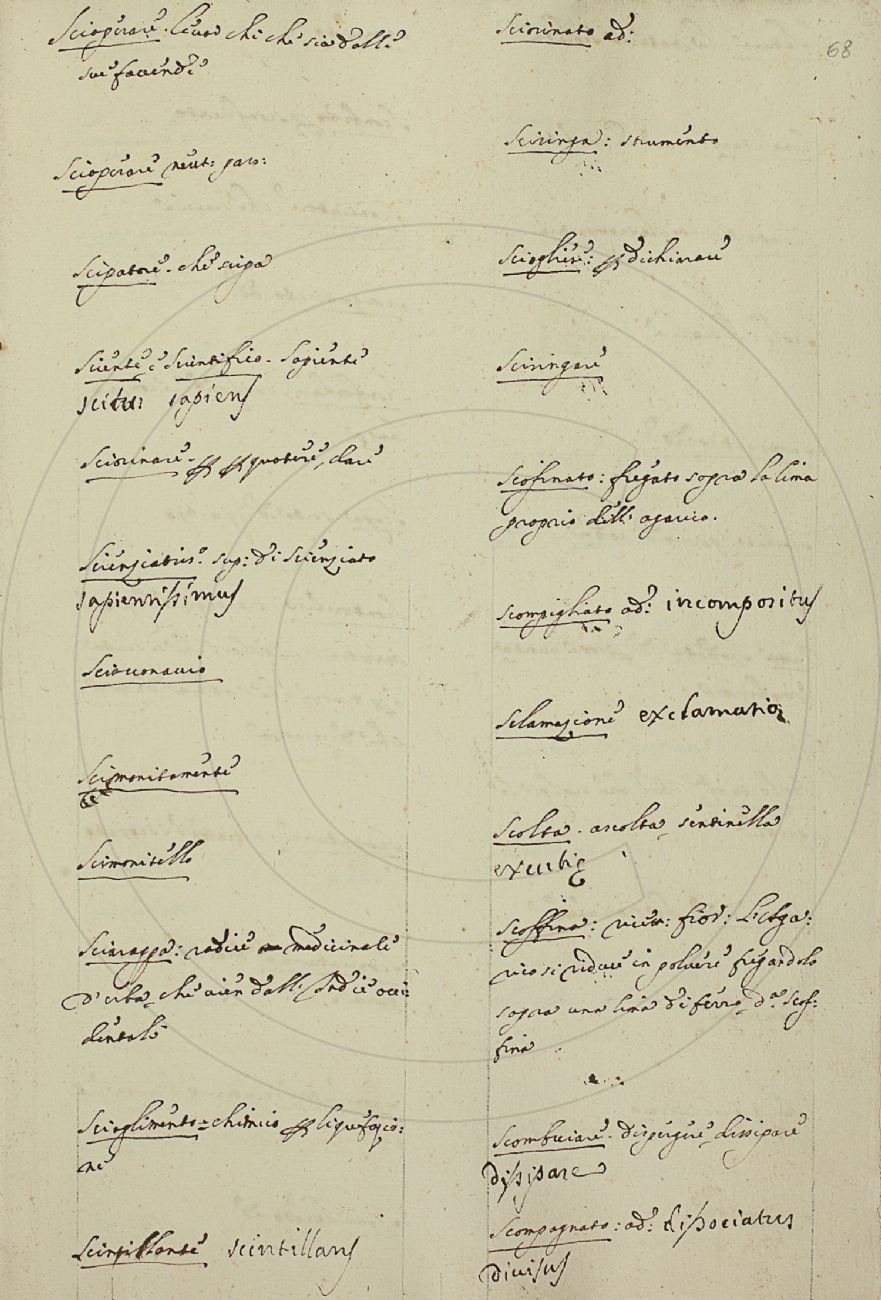 Scioperare. levar chi che sia dalle
sue facende
Scioperare neut: pas:
Scipatore. che scipa
Sciente, e Scientifico. Sapiente
scitus sapiens
Sciorinare. quotere, dare
Scienziatiss.º sup: di Scienziato
sapientissimus
Scimonitamente
Scimonitello
Sciarappa: radice medicinale
d'erba, che vien dall'Indie occi:
dentali
Scioglimento = chimico liquefazio:
ne
Scintillante scintillans
Sciorinato ad:
68
Sciringa: strumento
Sciogliere: dichiarare
Sciringare
Scofinato: fregato sopra la lima
proprio dell' agarico.
Scompigliato ad: incompositus
Sclamazione exclamatio
Scolta. ascolta, sentinella
excubiæ
Scoffina: ricet: fior: L'Aga:
rico si riduce in polvere fregandolo
sopra una lima di ferro, d.ª Scof:
fina
Scombuiare. dispergere, dissipare
dissipare
Scompagnato: ad: dissociatus
divisus